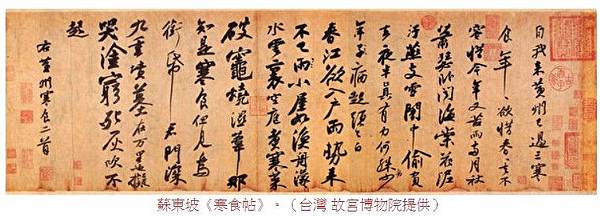 自我來黃州已過三寒
食年〻欲惜春〻去不
容惜今年又苦雨兩月秋
蕭瑟臥聞海棠花泥
汙燕支雪闇中偷負
去夜半真有力何殊少
年子病起頭已白
春江欲入戶雨勢來
不已雨小屋如漁舟濛〻
水雲裏空庖煮寒菜
破竈燒濕葦那
知是寒食但見烏
銜帋君門深
九重墳墓在万里也擬
哭塗窮死灰吹不
起
右黃州寒食二首
蘇東坡《寒食帖》。（台灣 故宮博物院提供）